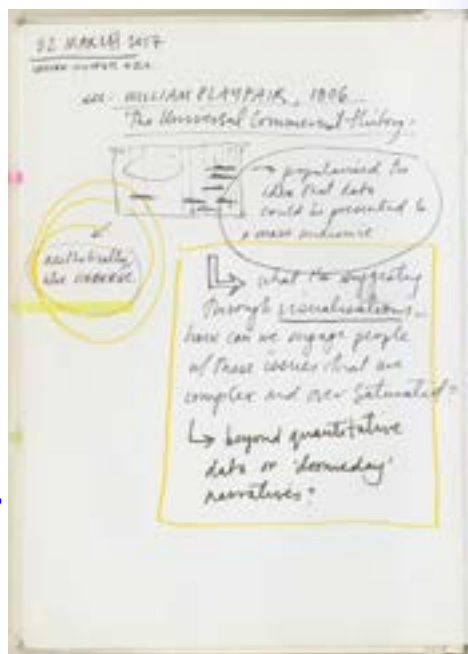 02 MARCH 2017
see: WILLIAM PLAYFAIR, 1806
The Universal Commercial History.
→ popularised the
idea that data
could be presented to
a mass audience
aesthetically
like
↳ what
suggesting
through visualisations
how can we engage people
of these issues that are
complex and over saturated?
↳ beyond quantitative
data or 'doomsday'
narratives?